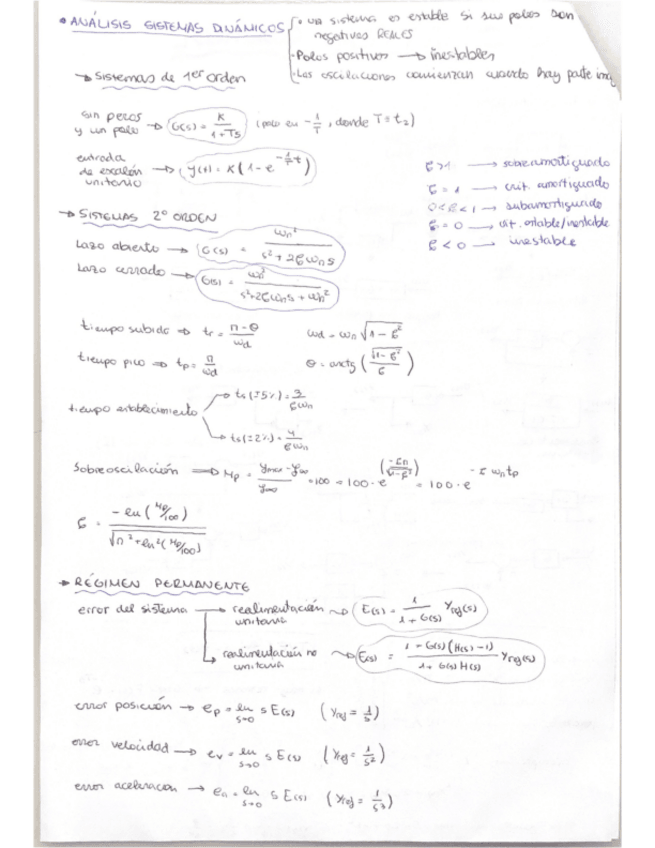 • ANÁLISIS SISTEMAS DINÁMICOS
• un sistema es estable si sus polos son
negativos REALES
• Polos positivos → inestables
• Las oscilaciones comienzan cuando hay parte img
→ Sistemas de 1er orden
sin ceros
y un polo → G(s) = K / (1+Ts) (polo en -1/T, donde T = t2)
entrada
de escalón
unitario → y(t) = K(1 - e^(-1/T t))
ξ>1 → sobreamortiguado
ξ = 1 → crit. amortiguado
0<ξ<1 → subamortiguado
ξ = 0 → crit. estable/inestable
ξ < 0 → inestable
→ SISTEMAS 2º ORDEN
Lazo abierto → G(s) = ωn² / (s² + 2ξωn s)
Lazo cerrado → G(s) = ωn² / (s² + 2ξωn s + ωn²)
tiempo subida ⇒ tr = (π - θ) / ωd ωd = ωn √(1 - ξ²)
tiempo pico ⇒ tp = π / ωd θ = arctg (√(1 - ξ²) / ξ)
tiempo establecimiento
→ ts (±5%) = 3 / ξωn
→ ts (±2%) = 4 / ξωn
Sobreoscilación ⇒ Mp = (ymax - y∞) / y∞ · 100 = 100 · e^(-ξπ / √(1-ξ²)) = 100 · e^(-ξ ωn tp)
ξ = -ln (Mp/100) / √(π² + ln² (Mp/100))
→ RÉGIMEN PERMANENTE
error del sistema → realimentación
unitaria → E(s) = 1 / (1 + G(s)) Yref(s)
→ realimentación no
unitaria → E(s) = (1 + G(s)(H(s) - 1)) / (1 + G(s) H(s)) Yref(s)
error posición → ep = lim s→0 s E(s) (Yref = 1/s)
error velocidad → ev = lim s→0 s E(s) (Yref = 1/s²)
error aceleracion → ea = lim s→0 s E(s) (Yref = 1/s³)